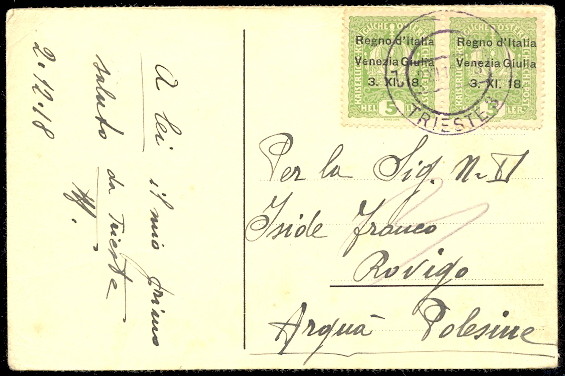 A lei il mio primo
saluto da Trieste
2.12.18
KAISERLICHE KÖNIGLICHE ÖSTERREICHISCHE POST
Regno d'Italia
Venezia Giulia
3. XI. 18
5
HEL
Regno d'Italia
Venezia Giulia
3. XI. 18.
LER
TRIESTE 8
Per la Sig.
Iside Franco
Rovigo
Arquà Polesine